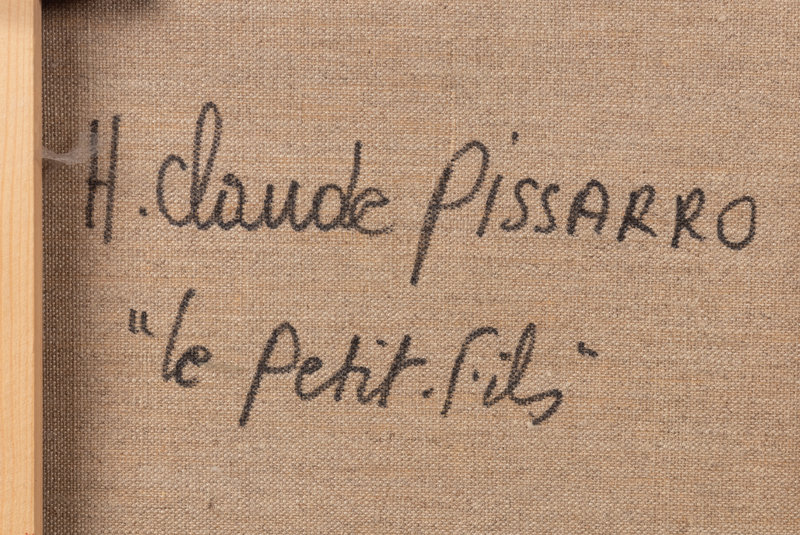 H. Claude PISSARRO
"le petit-fils"